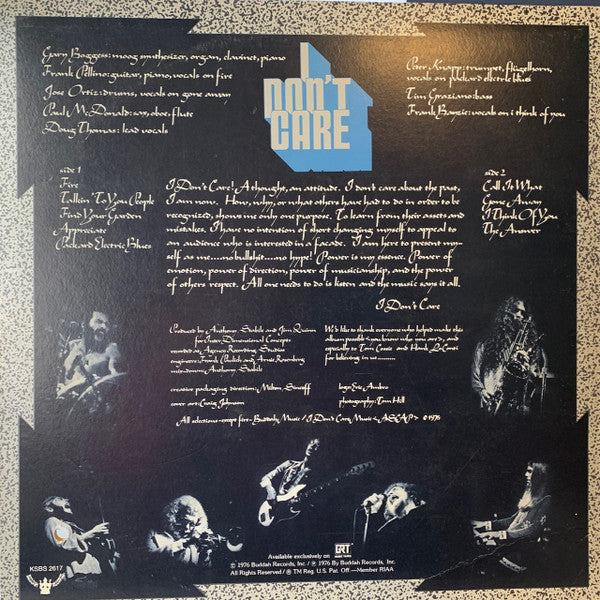 Gary Boggess: moog synthesizer, organ, clavinet, piano
Frank Pellino: guitar, piano, vocals on fire
Jose Ortiz: drums, vocals on gone away
Paul McDonald: sax, oboe, flute
Doug Thomas: lead vocals
I
DON'T
CARE
Peter Knapp: trumpet, flügelhorn,
vocals on packard electric blues
Tim Graziano: bass
Frank: vocals on i think of you
side 1
Fire
Talkin' To You People
Find Your Garden
Appreciate
Packard Electric Blues
I Don't Care! A thought, an attitude. I don't care about the past,
I am now. How, why, or what others have had to do in order to be
recognized, shows me only one purpose. To learn from their assets and
mistakes. I have no intention of short changing myself to appeal to
an audience who is interested in a facade. I am here to present my-
self as me.....no bullshit....no hype! Power is my essence. Power of
emotion, power of direction, power of musicianship, and the power
of others respect. All one needs to do is listen and the music says it all.
I Don't Care
side 2
Call It What
Gone Away
I Think Of You
The Answer
Produced by Anthony and Jim Quinn
for Inter Dimensional Concepts
recorded at Agency Recording Studios
engineers: Frank and Arnie Rosenberg
mixdown: Anthony
We'd like to thank everyone who helped make this
album possible (you know who you are), and
especially to Tom and Hank
for believing in us..........
creative packaging direction: Milton Sincoff
cover art: Craig Johnson
logo: Eric
photography: Tom Hill
All selections except fire - Buddah Music / I Don't Care Music <ASCAP> © 1976
Available exclusively on GRT MUSIC TAPES
© 1976 Buddah Records, Inc. / ℗ 1976 By Buddah Records, Inc.
All Rights Reserved / ® TM Reg. U.S. Pat. Off —Member RIAA
KSBS 2617